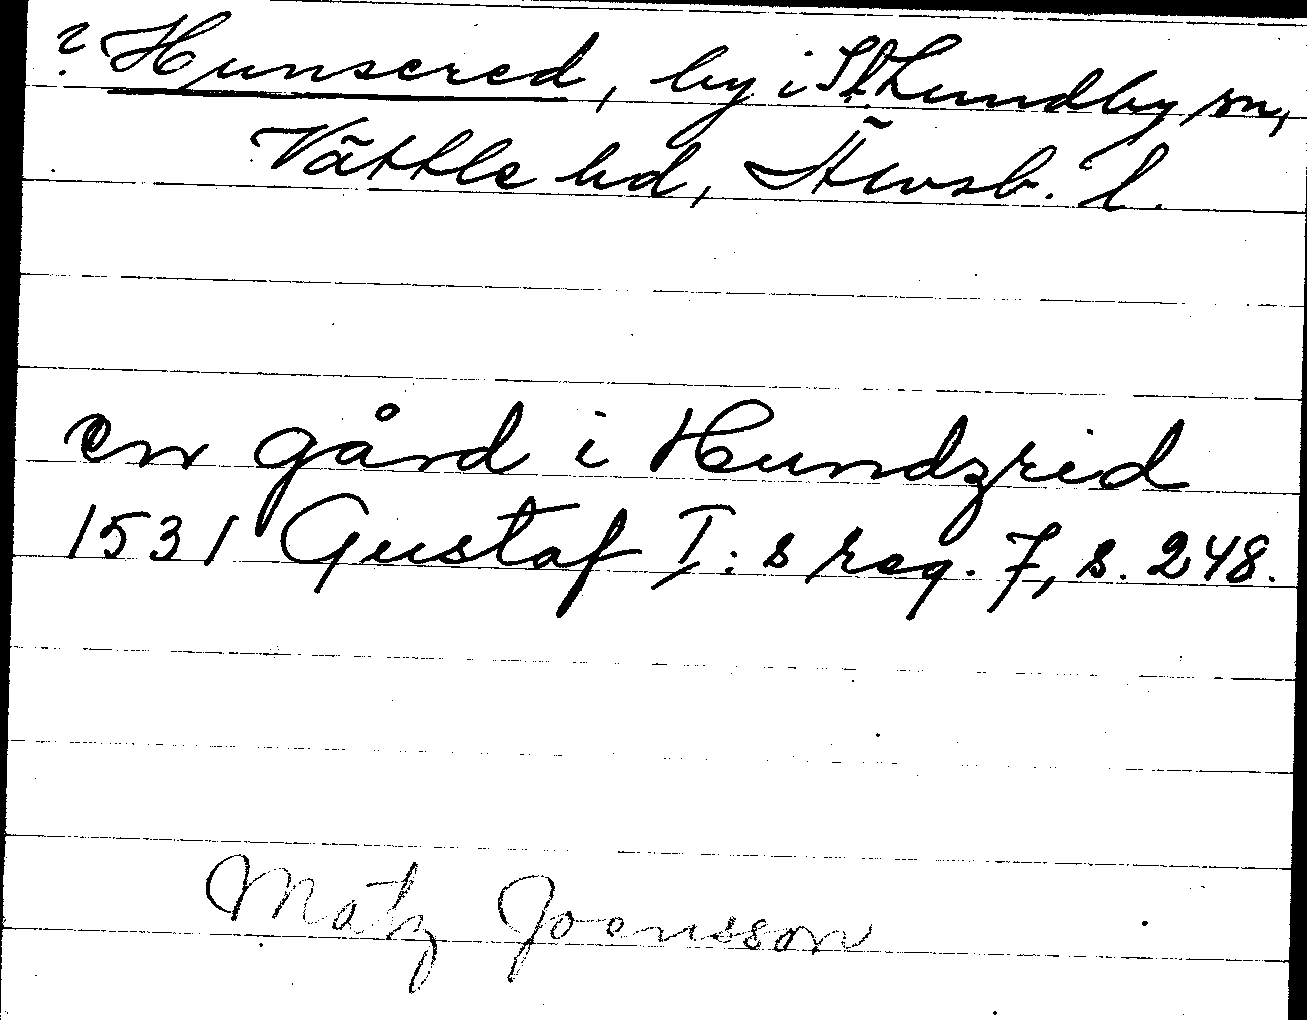 ? Hunsered, by i St. Lundby sn,
Vättle hd, Älvsb. l.
en gård i Hundzrid
1531 Gustaf I:s reg. 7, s. 248.
Matz Joensson